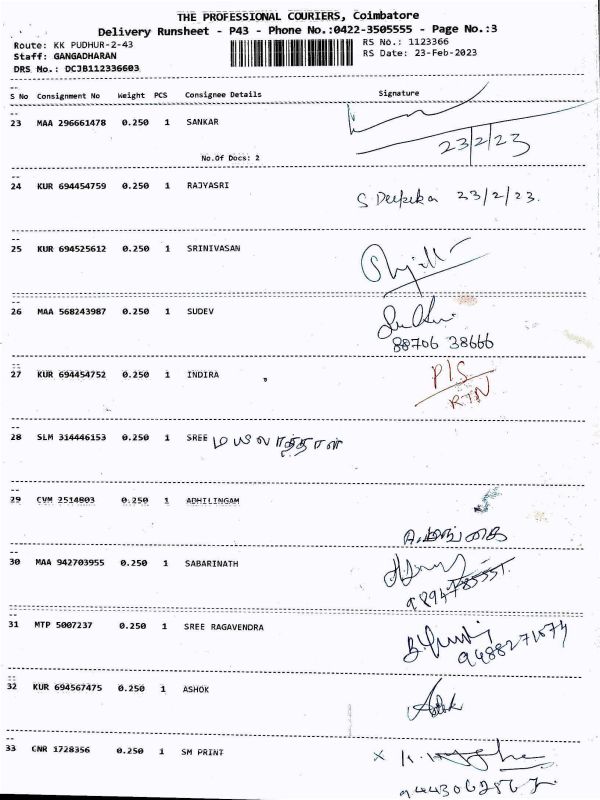 THE PROFESSIONAL COURIERS, Coimbatore
Delivery Runsheet - P43 - Phone No.:0422-3505555 - Page No.:3
Route: KK PUDHUR-2-43
RS No.: 1123366
Staff: GANGADHARAN
RS Date: 23-Feb-2023
DRS No.: DCJB112336603
S No Consignment No Weight PCS Consignee Details Signature
23 MAA 296661478 0.250 1 SANKAR
23/2/23
No.Of Docs: 2
24 KUR 694454759 0.250 1 RAJYASRI
S Deepika 23/2/23.
25 KUR 694525612 0.250 1 SRINIVASAN
26 MAA 568243987 0.250 1 SUDEV
88706 38666
27 KUR 694454752 0.250 1 INDIRA
P/S
RTN
28 SLM 314446153 0.250 1 SREE மயிலாத்தாள்
29 CVM 2514803 0.250 1 ADHILINGAM
30 MAA 942703955 0.250 1 SABARINATH
31 MTP 5007237 0.250 1 SREE RAGAVENDRA
9488271074
32 KUR 694567475 0.250 1 ASHOK
Ashok
33 CNR 1728356 0.250 1 SM PRINT